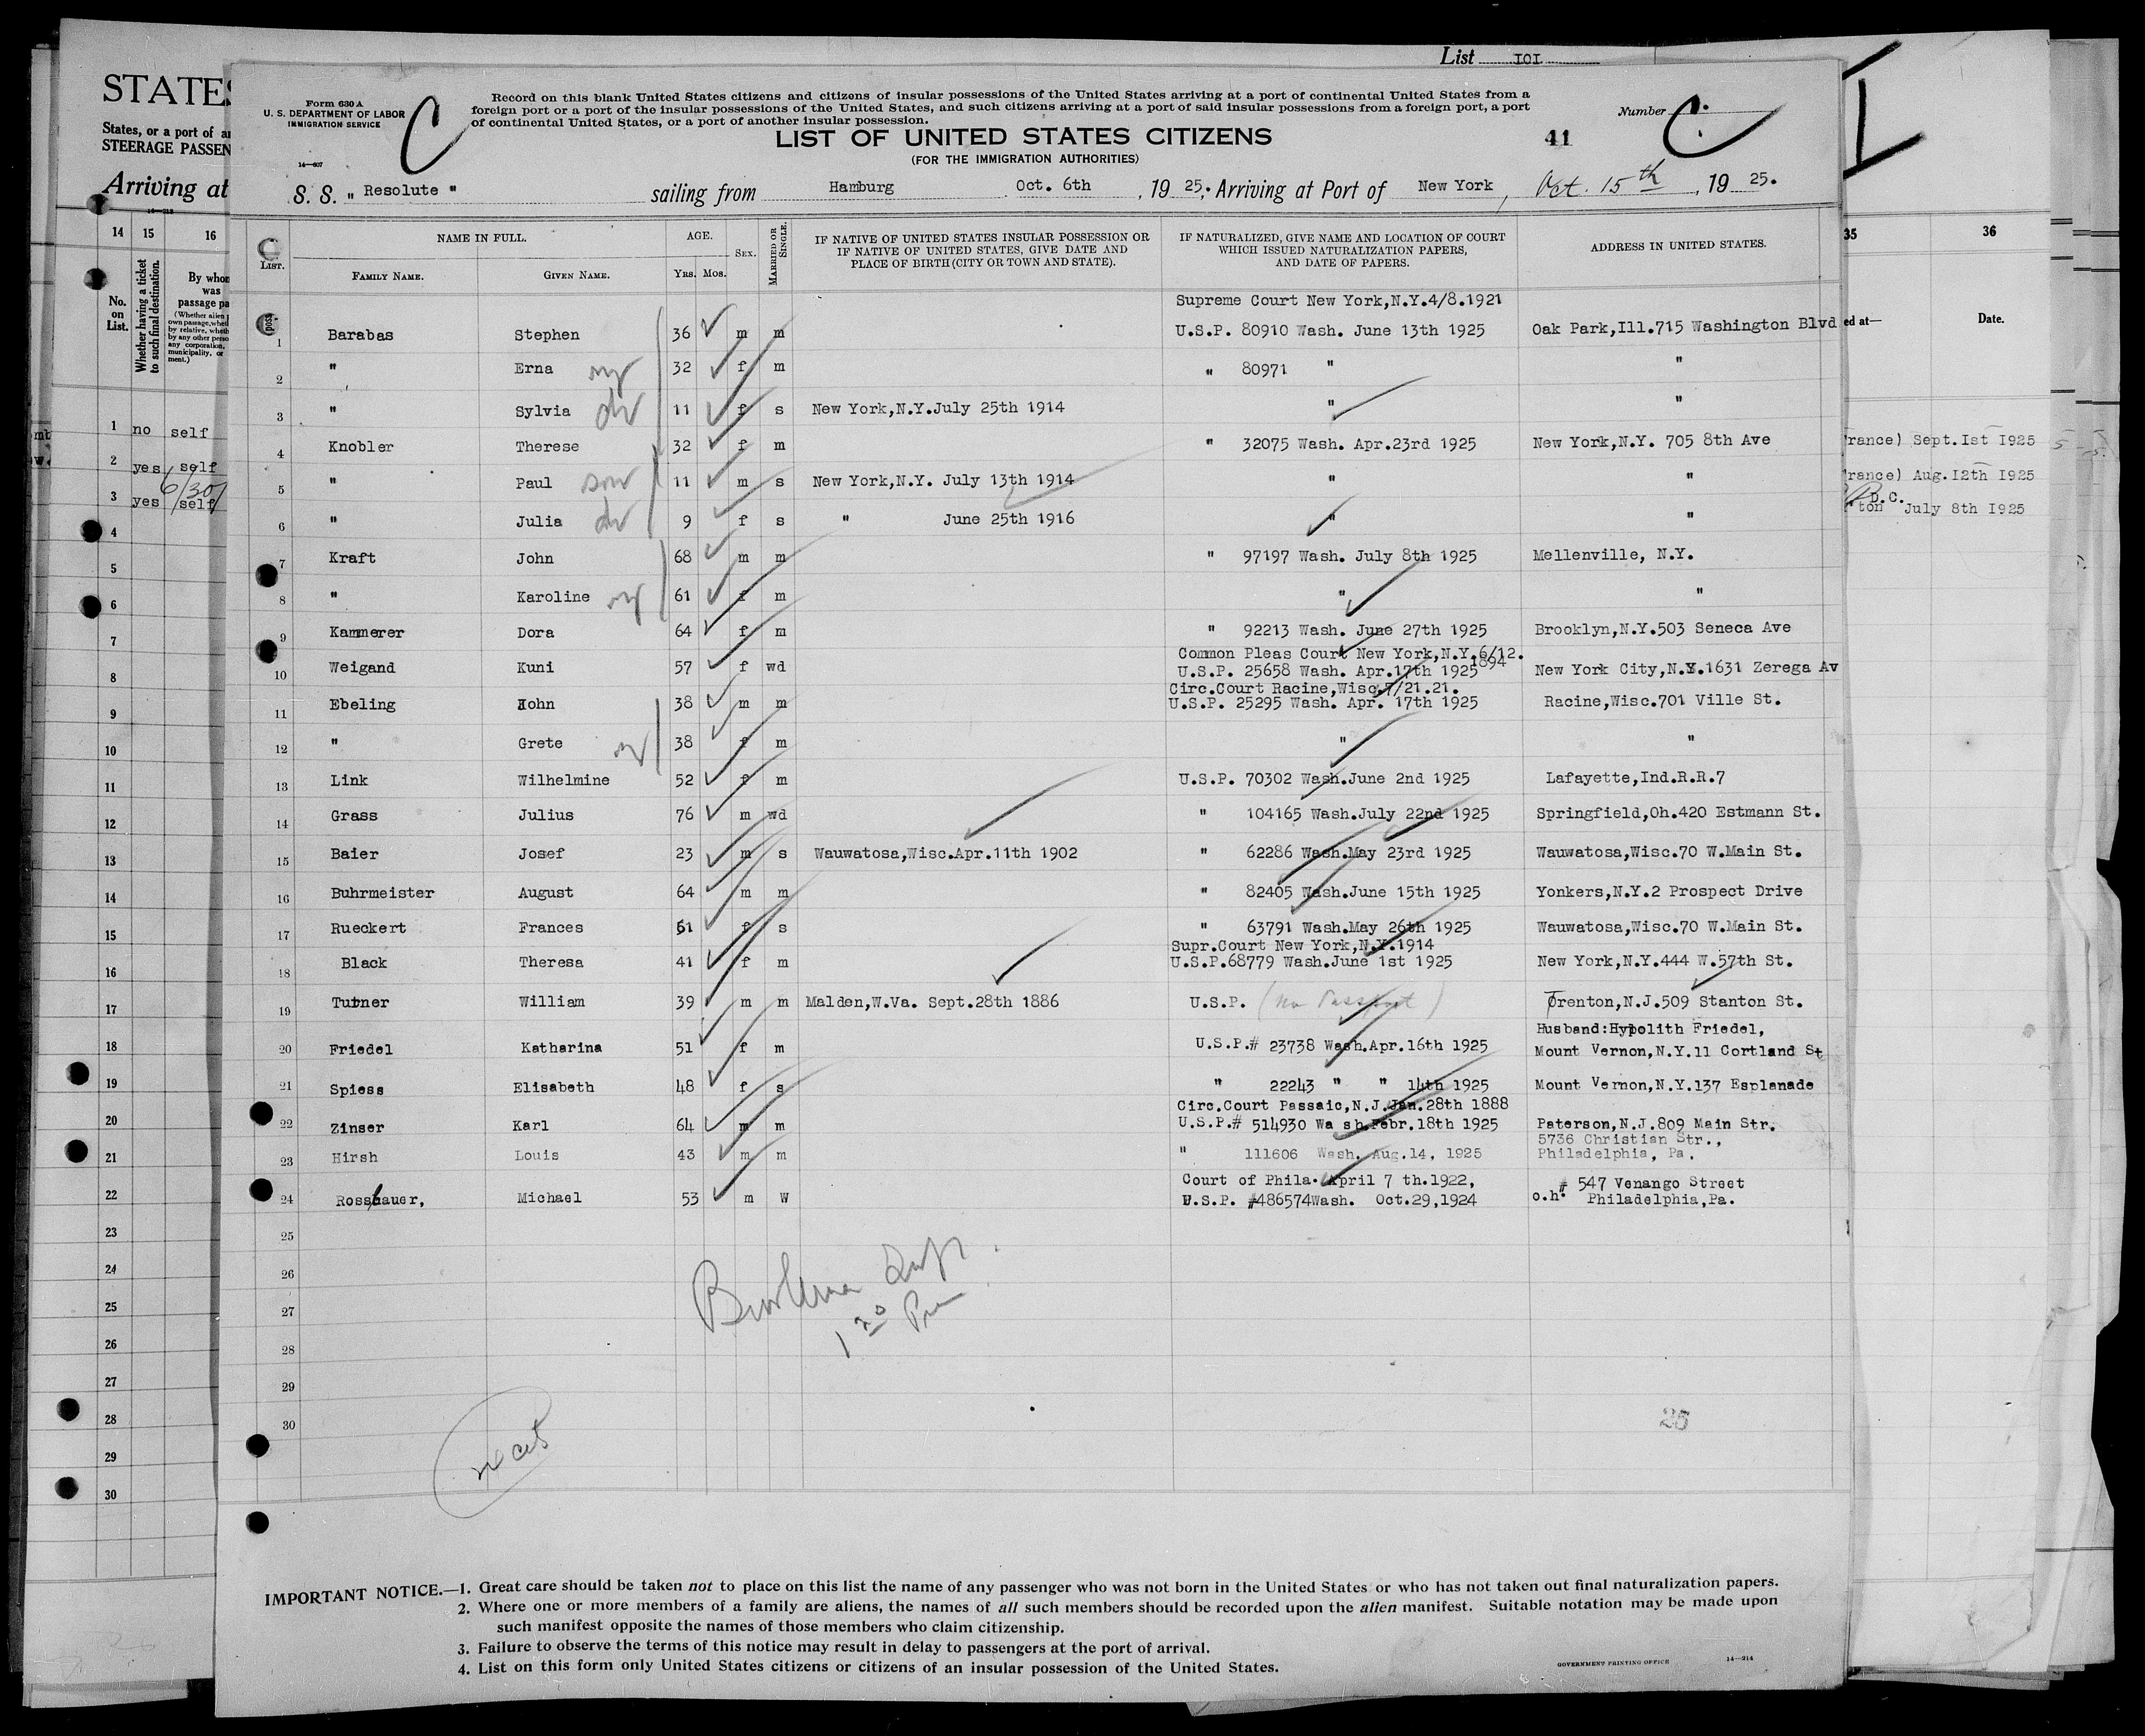 List 101
STATES
States, or a port of
STEERAGE PASSEN
Arriving at
Form 630 A
U. S. DEPARTMENT OF LABOR
IMMIGRATION SERVICE
14—607
C
Record on this blank United States citizens and citizens of insular possessions of the United States arriving at a port of continental United States from a
foreign port or a port of the insular possessions of the United States, and such citizens arriving at a port of said insular possessions from a foreign port, a port
of continental United States, or a port of another insular possession.
Number C
LIST OF UNITED STATES CITIZENS
41
(FOR THE IMMIGRATION AUTHORITIES)
S. S. " Resolute " sailing from Hamburg Oct. 6th , 19 25. Arriving at Port of New York , Oct. 15th , 19 25.
LIST. NAME IN FULL. AGE. SEX. MARRIED OR SINGLE.
FAMILY NAME. GIVEN NAME. YRS. MOS.
IF NATIVE OF UNITED STATES INSULAR POSSESSION OR
IF NATIVE OF UNITED STATES, GIVE DATE AND
PLACE OF BIRTH (CITY OR TOWN AND STATE).
IF NATURALIZED, GIVE NAME AND LOCATION OF COURT
WHICH ISSUED NATURALIZATION PAPERS,
AND DATE OF PAPERS.
ADDRESS IN UNITED STATES.
Supreme Court New York,N.Y.4/8.1921
1 Barabas Stephen 36 m m U.S.P. 80910 Wash. June 13th 1925 Oak Park,Ill.715 Washington Blvd
2 " Erna 32 f m " 80971 " "
3 " Sylvia 11 f s New York,N.Y.July 25th 1914 " "
4 Knobler Therese 32 f m " 32075 Wash. Apr.23rd 1925 New York,N.Y. 705 8th Ave
5 " Paul son 11 m s New York,N.Y. July 13th 1914 " "
6 " Julia 9 f s " June 25th 1916 " "
7 Kraft John 68 m m " 97197 Wash. July 8th 1925 Mellenville, N.Y.
8 " Karoline 61 f m " "
9 Kammerer Dora 64 f m " 92213 Wash. June 27th 1925 Brooklyn,N.Y.503 Seneca Ave
Common Pleas Court New York,N.Y.6/12.
1894
10 Weigand Kuni 57 f wd U.S.P. 25658 Wash. Apr.17th 1925 New York City,N.Y.1631 Zerega Av
Circ.Court Racine,Wisc.7/21.21.
11 Ebeling John 38 m m U.S.P. 25295 Wash. Apr. 17th 1925 Racine,Wisc.701 Ville St.
12 " Grete 38 f m " "
13 Link Wilhelmine 52 f m U.S.P. 70302 Wash.June 2nd 1925 Lafayette,Ind.R.R.7
14 Grass Julius 76 m wd " 104165 Wash.July 22nd 1925 Springfield,Oh.420 Estmann St.
15 Baier Josef 23 m s Wauwatosa,Wisc.Apr.11th 1902 " 62286 Wash.May 23rd 1925 Wauwatosa,Wisc.70 W.Main St.
16 Buhrmeister August 64 m m " 82405 Wash.June 15th 1925 Yonkers,N.Y.2 Prospect Drive
17 Rueckert Frances 61 f s " 63791 Wash.May 26th 1925 Wauwatosa,Wisc.70 W.Main St.
Supr.Court New York,N.Y.1914
18 Black Theresa 41 f m U.S.P.68779 Wash.June 1st 1925 New York,N.Y.444 W.57th St.
19 Turner William 39 m m Malden,W.Va. Sept.28th 1886 U.S.P. (No Passport) Trenton,N.J.509 Stanton St.
Husband:Hypolith Friedel,
20 Friedel Katharina 51 f m U.S.P.# 23738 Wash.Apr.16th 1925 Mount Vernon,N.Y.11 Cortland St
21 Spiess Elisabeth 48 f s " 22243 " " 14th 1925 Mount Vernon,N.Y.137 Esplanade
Circ.Court Passaic,N.J.Jan.28th 1888
22 Zinser Karl 64 m m U.S.P.# 514930 Wa sh.Febr.18th 1925 Paterson,N.J.809 Main Str.
5736 Christian Str.,
23 Hirsh Louis 43 m m " 111606 Wash. Aug.14, 1925 Philadelphia, Pa.
Court of Phila. April 7 th.1922, # 547 Venango Street
24 Rosshauer, Michael 53 m W U.S.P. #486574Wash. Oct.29,1924 o.h. Philadelphia,Pa.
25
26
27
28
29
30
25
IMPORTANT NOTICE.—1. Great care should be taken not to place on this list the name of any passenger who was not born in the United States or who has not taken out final naturalization papers.
2. Where one or more members of a family are aliens, the names of all such members should be recorded upon the alien manifest. Suitable notation may be made upon
such manifest opposite the names of those members who claim citizenship.
3. Failure to observe the terms of this notice may result in delay to passengers at the port of arrival.
4. List on this form only United States citizens or citizens of an insular possession of the United States.
GOVERNMENT PRINTING OFFICE 14—214
14 15 16
No. on List.
Whether having a ticket to such final destination.
By whom
was
passage pa
1 no self
2 yes self
6/30
3 yes self
4
5
6
7
8
9
10
11
12
13
14
15
16
17
18
19
20
21
22
23
24
25
26
27
28
29
30
I
35 36
ed at— Date.
rance) Sept.1st 1925
rance) Aug.12th 1925
D.C.
ton July 8th 1925